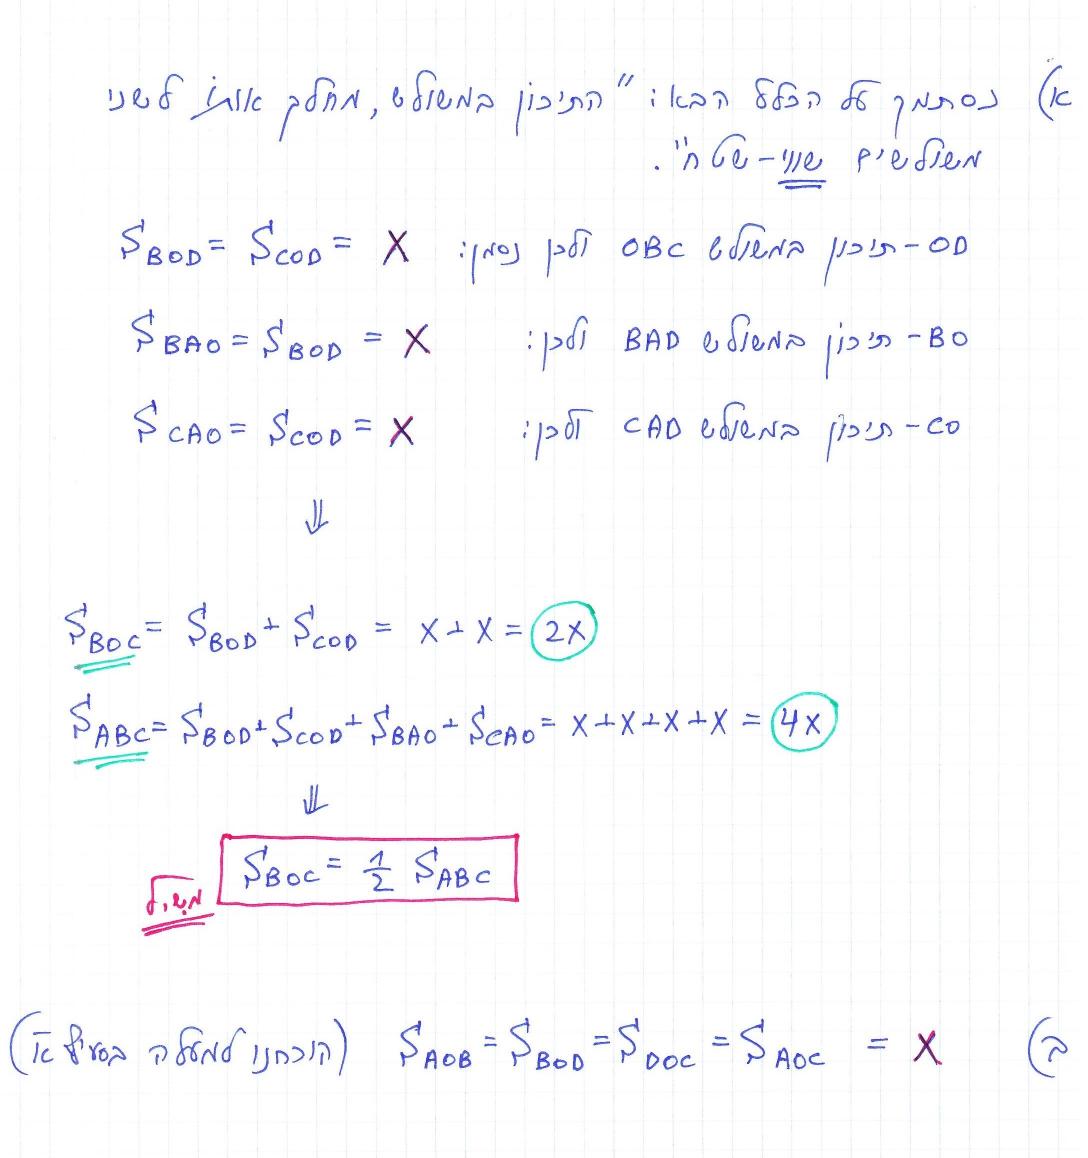 א) נסתמך על הכלל הבא: "התיכון במשולש, מחלק אותו לשני
משולשים שווי-שטח".
OD - תיכון במשולש OBC ולכן נסמן: S_BOD = S_COD = X
BO - תיכון במשולש BAD ולכן: S_BAO = S_BOD = X
CO - תיכון במשולש CAD ולכן: S_CAO = S_COD = X
⇓
S_BOC = S_BOD + S_COD = X + X = 2X
S_ABC = S_BOD + S_COD + S_BAO + S_CAO = X + X + X + X = 4X
⇓
S_BOC = 1/2 S_ABC
מש.ל
ב) S_AOB = S_BOD = S_DOC = S_AOC = X (הוכחנו למעלה בסעיף א)